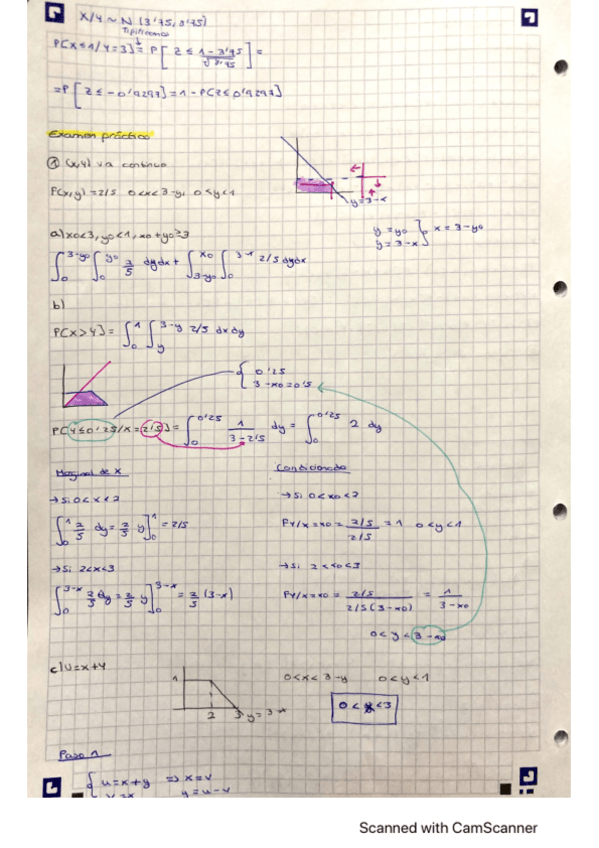 X/Y ~ N (3'75, 3'75)
Tipificamos
P[X≤1/Y=3] = P[ Z ≤ (1-3'75)/√3'75 ] =
= P[ Z ≤ -0'9297] = 1 - P[Z ≤ 0'9297]
Examen práctico
① (X,Y) va continuo
P(x,y) = 2/5 0<x<3-y, 0<y<1
y=3-x
a) x0<3, y0<1, x0+y0≥3
y = y0
y = 3-x } x = 3-y0
∫_0^{3-y0} ∫_0^{y0} 2/5 dydx + ∫_{3-y0}^{x0} ∫_0^{3-x} 2/5 dydx
b)
P[X>Y] = ∫_0^1 ∫_y^{3-y} 2/5 dx dy
{ 0'25
3-x0=0'5
P[Y≤0'25/X=2'5] = ∫_0^{0'25} 1/(3-2'5) dy = ∫_0^{0'25} 2 dy
Marginal de X
→ Si 0<x<2
∫_0^1 2/5 dy = 2/5 y]_0^1 = 2/5
→ Si 2<x<3
∫_0^{3-x} 2/5 dy = 2/5 y]_0^{3-x} = 2/5 (3-x)
Condicionada
→ Si 0<x0<2
PY/X=x0 = (2/5)/(2/5) = 1 0<y<1
→ Si 2<x0<3
PY/X=x0 = (2/5)/(2/5(3-x0)) = 1/(3-x0)
0<y<3-x0
c) U=X+Y
1
2 3 y=3-x
0<x<3-y 0<y<1
Paso 1
{ u=x+y ⇒ x=v
v=x y=u-v
Scanned with CamScanner